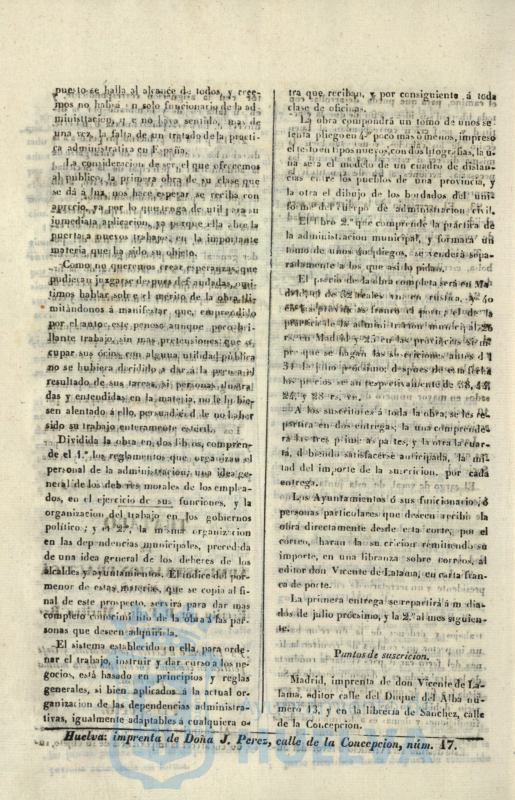 puesto se halla al alcance de todos, y cree-
mos no habrá un solo funcionario de la ad-
ministracion, que no haya sentido, mas de
una vez, la falta de un tratado de la practi-
ca administrativa en España.
La consideracion de ser, el que ofrecemos
al público, la primera obra de su clase que
se dá á luz, nos hace esperar se reciba con
aprecio, ya por lo que tenga de util para su
inmediata aplicacion, ya porque ella abre la
puerta a nuevos trabajos, en la importante
materia que ha sido su objeto.
Como no queremos crear esperanzas, que
pudieran juzgarse despues defraudadas, omi-
timos hablar sobre el mérito de la obra, li-
mitándonos á manifestar, que, emprendido
por el autor, este penoso aunque poco bri-
llante trabajo, sin mas pretensiones que o-
cupar sus ócios con alguna utilidad pública
no se hubiera decidido a dar á la prensa el
resultado de sus tareas, si personas ilustra-
das y entendidas en la materia, no le hubie-
sen alentado á ello, persuadiéndole de no haber
sido su trabajo enteramente estéril.
Dividida la obra en dos libros, compren-
de el 1.º los reglamentos que organizan el
personal de la administracion; una idea ge-
neral de los deberes morales de los emplea-
dos, en el ejercicio de sus funciones, y la
organizacion del trabajo en los gobiernos
político; y el 2.º, la misma organizacion
en las dependencias municipales, precedida
de una idea general de los deberes de los
alcaldes y ayuntamientos. El índice del por-
menor de estas materias, que se copia al fi-
nal de este prospecto, servira para dar mas
completo conocimiento de la obra á las per-
sonas que deseen adquirirla.
El sistema establecido en ella, para orde-
nar el trabajo, instruir y dar curso a los ne-
gocios, está basado en principios y reglas
generales, si bien aplicados á la actual or-
ganizacion de las dependencias administra-
tivas, igualmente adaptables a cualquiera o-
tra que reciban, y por consiguiente á toda
clase de oficinas.
La obra compondrá un tomo de unos se-
tenta pliegos en 4º poco mas ó menos, impreso
el testo en tipos nuevos, con dos litografias, la u-
na sera el modelo de un cuadro de distan-
cias entre los pueblos de una provincia, y
la otra el dibujo de los bordados del uni-
forme del cuerpo de administracion civil.
El libro 2.º que comprende la práctica de
la administracion municipal, y formará un
tomo de unos pliegos, se venderá sepa-
radamente a los que asi lo pidan.
El precio de la obra completa será en Ma-
drid, el de 32 reales vn. en rústica, y 40
en las provincias franco el porte; el de la
práctica de la administracion municipal 20
rs. en Madrid y 25 en las provincias siem-
pre que se hagan las suscriciones antes del
31 de julio próximo; despues de esta fecha
los precios serán respectivamente de 38, 48,
24, y 28 rs. vn.
A los suscritores á toda la obra, se les re-
partira en dos entregas; la una comprende-
rá las tres primeras partes, y la otra la cuar-
ta, debiendo satisfacerse anticipada, la mi-
tad del importe de la suscricion, por cada
entrega.
Los Ayuntamientos ó sus funcionarios, ó
personas particulares que deseen recibir la
obra directamente desde esta corte, por el
correo, haran la suscricion remitiendo su
importe, en una libranza sobre correos, al
editor don Vicente de Lalama, en carta fran-
ca de porte.
La primera entrega se repartirá á media-
dos de julio prócsimo, y la 2.ª al mes siguien-
te.
Puntos de suscricion.
Madrid, imprenta de don Vicente de La-
lama, editor calle del Duque del Alba nú-
mero 13, y en la libreria de Sanchez, calle
de la Concepcion.
Huelva: imprenta de Doña J. Perez, calle de la Concepcion, núm. 17.
HUELVA